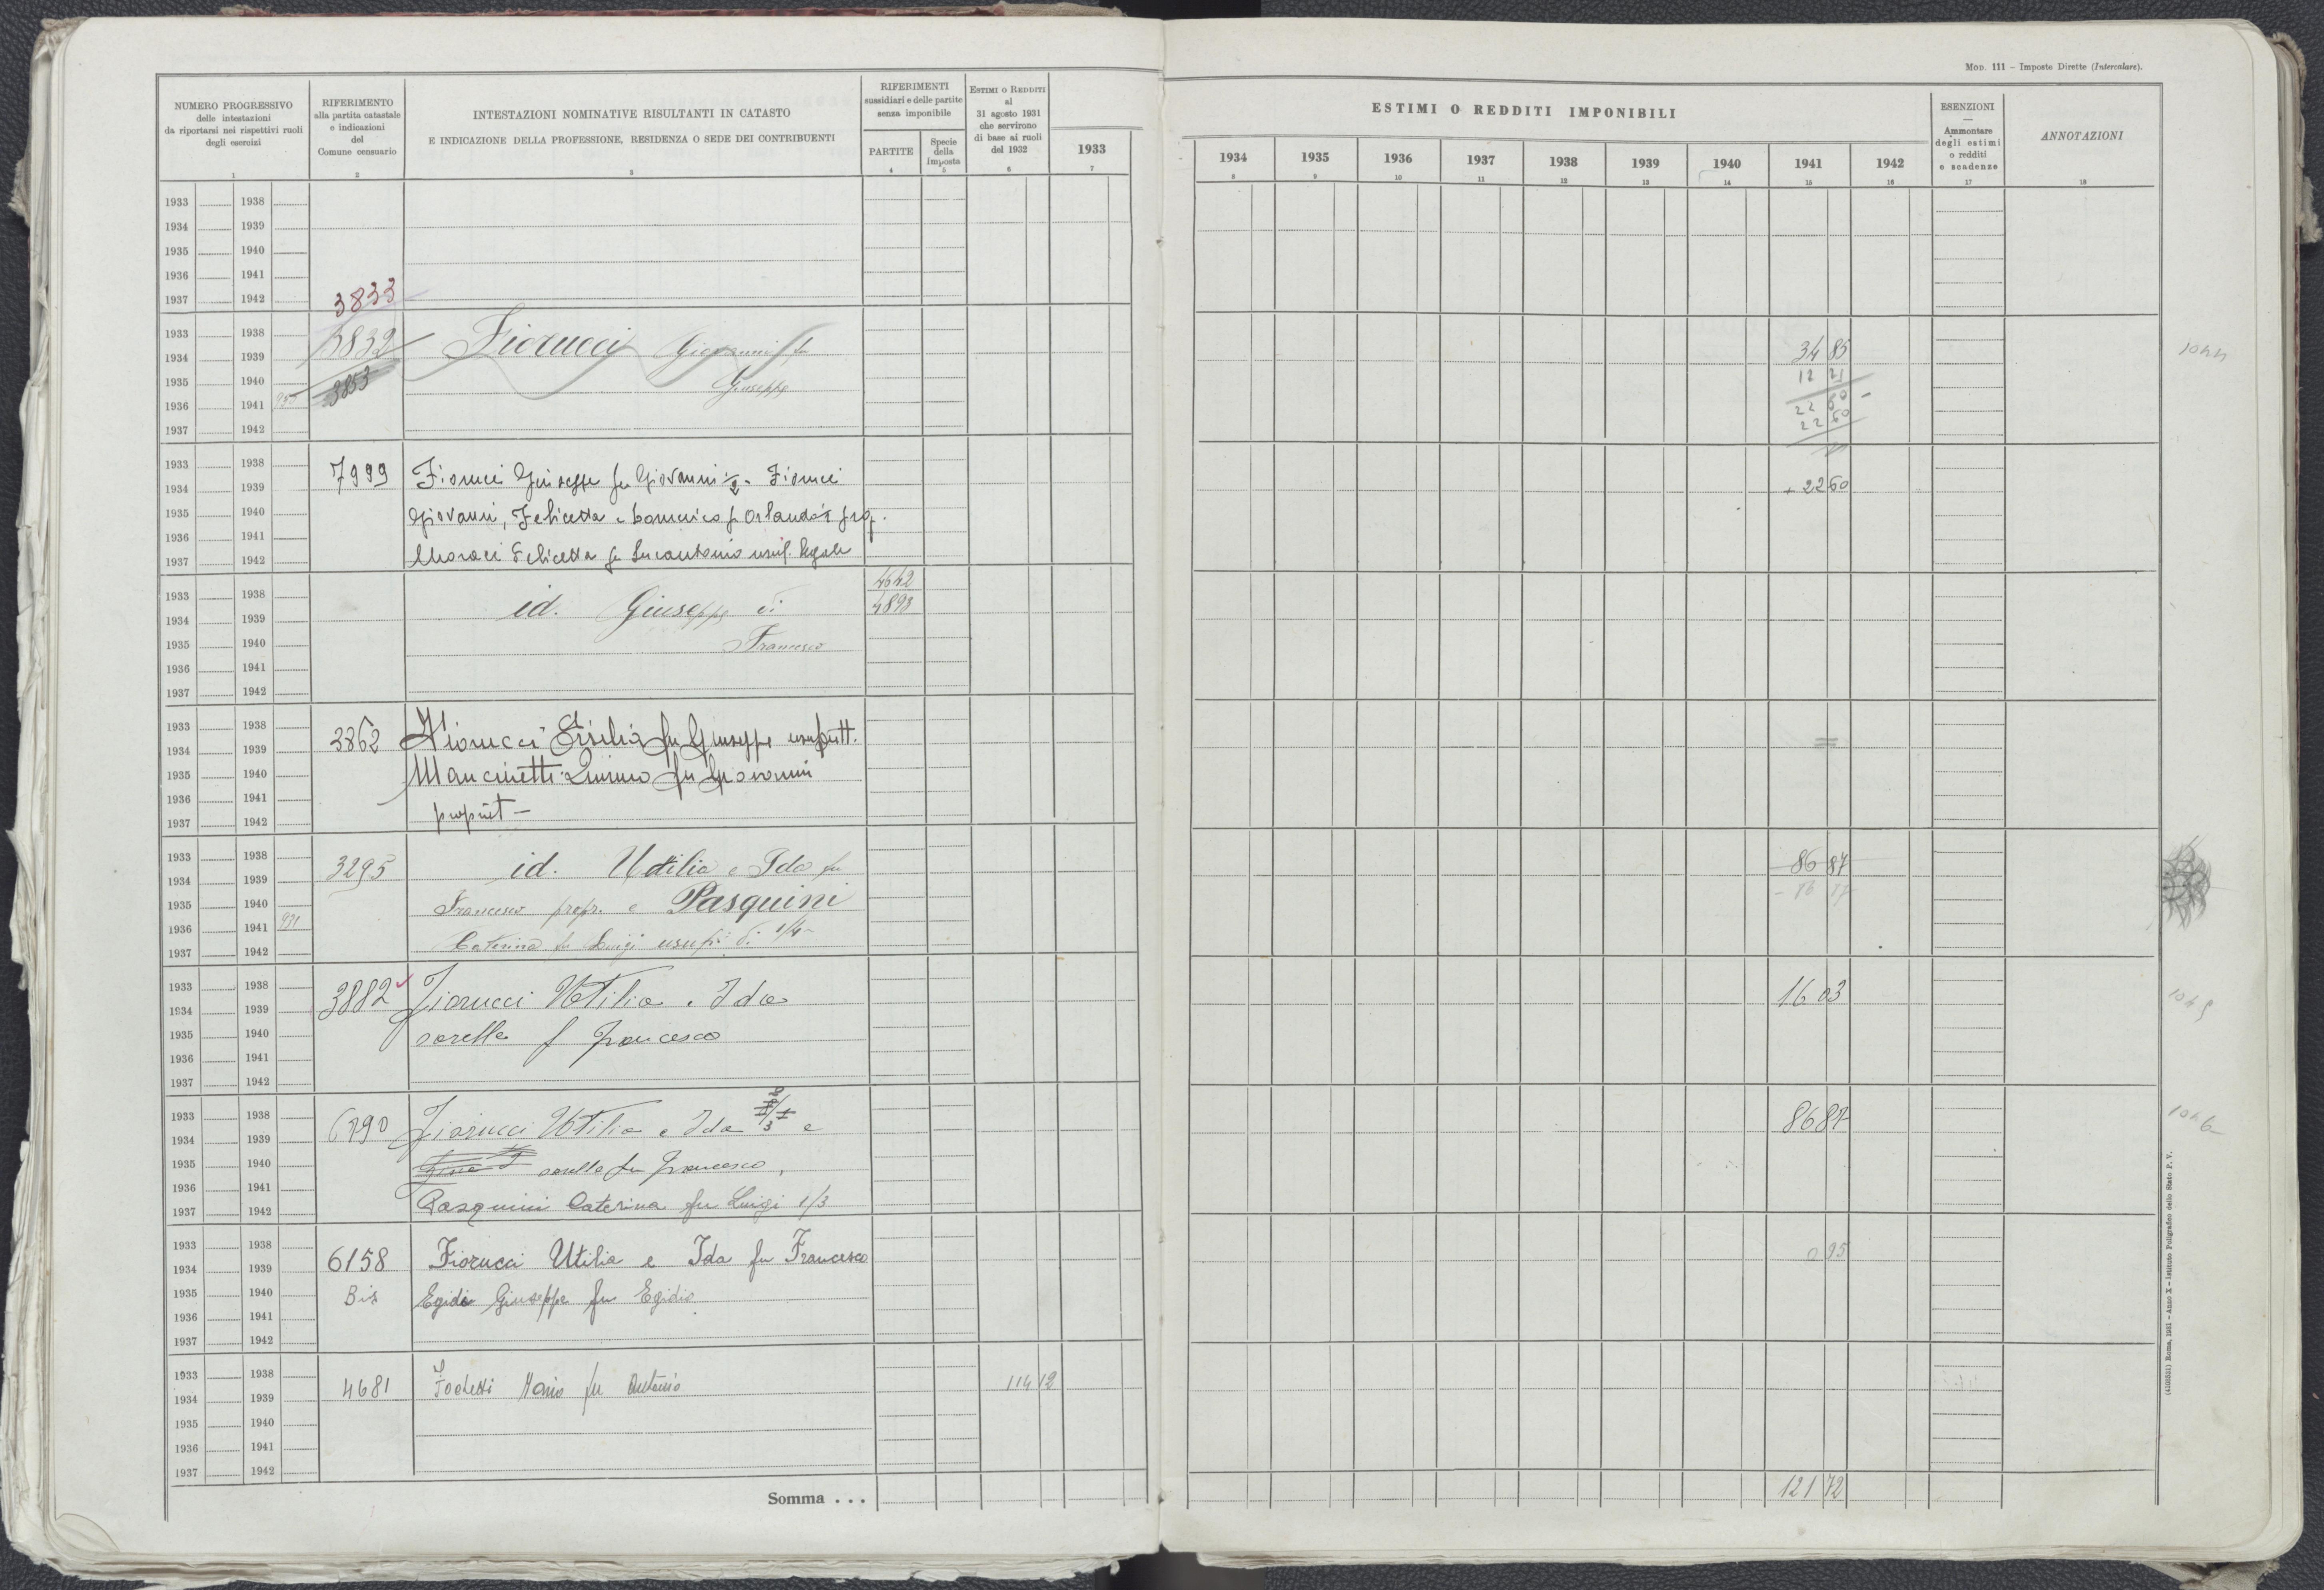 Mod. 111 – Imposte Dirette (Intercalare).
NUMERO PROGRESSIVO
delle intestazioni
da riportarsi nei rispettivi ruoli
degli esercizi
1
RIFERIMENTO
alla partita catastale
e indicazioni
del
Comune censuario
2
INTESTAZIONI NOMINATIVE RISULTANTI IN CATASTO
E INDICAZIONE DELLA PROFESSIONE, RESIDENZA O SEDE DEI CONTRIBUENTI
3
RIFERIMENTI
sussidiari e delle partite
senza imponibile
PARTITE
4
Specie
della
imposta
5
Estimi o Redditi
al
31 agosto 1931
che servirono
di base ai ruoli
del 1932
6
ESTIMI O REDDITI IMPONIBILI
1933 1934 1935 1936 1937 1938 1939 1940 1941 1942
7 8 9 10 11 12 13 14 15 16
ESENZIONI
—
Ammontare
degli estimi
o redditi
e scadenze
17
ANNOTAZIONI
18
1933 1938
1934 1939
1935 1940
1936 1941
1937 1942 3833
1933 1938 3832 Fiorucci Giovanni fu 34 85
1934 1939 1044
1935 1940 3853 Giuseppe 12 21
1936 1941 930 22 60
22 60
1937 1942
1933 1938 7999 Fiorucci Giuseppe fu Giovanni 1/2 - Fiorucci
1934 1939 + 22 60
1935 1940 Giovanni, Felicetta e Domenico f Orlando
1936 1941
1937 1942 Felicetta fu Lucantonio usuf. legale
4642
1933 1938 id. Giuseppe di 4893
1934 1939
1935 1940 Francesco
1936 1941
1937 1942
1933 1938 3862 Fiorucci Ersilia fu Giuseppe usufrutt. =
1934 1939
1935 1940 Mancinetti Quirino fu Giovanni
1936 1941
1937 1942 propriet –
1933 1938 3295 id. Utilia e Ida fu 86 87
1934 1939 - 86 87
1935 1940 Francesco propr. e Pasquini
1936 1941 931
1937 1942 Caterina fu Luigi usufr. di 1/4
1933 1938 3882 Fiorucci Utilia e Ida 16 03
1934 1939
1935 1940 sorelle f Francesco
1936 1941
1937 1942
1933 1938 6790 Fiorucci Utilia e Ida 2/3 e 86 87 1046
1934 1939
1935 1940 sorelle fu Francesco,
1936 1941
1937 1942 Pasquini Caterina fu Luigi 1/3
1933 1938 6158 Fiorucci Utilia e Ida fu Francesco 0 95
1934 1939
1935 1940 Bis Egidi Giuseppe fu Egidio
1936 1941
1937 1942
1933 1938
1934 1939 4681 Mario fu Antonio 114 12
1935 1940
1936 1941
1937 1942
Somma . . . 121 72
(4106551) Roma, 1931 – Anno X – Istituto Poligrafico dello Stato P. V.